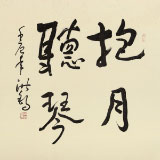 抱月
聽琴
壬辰年